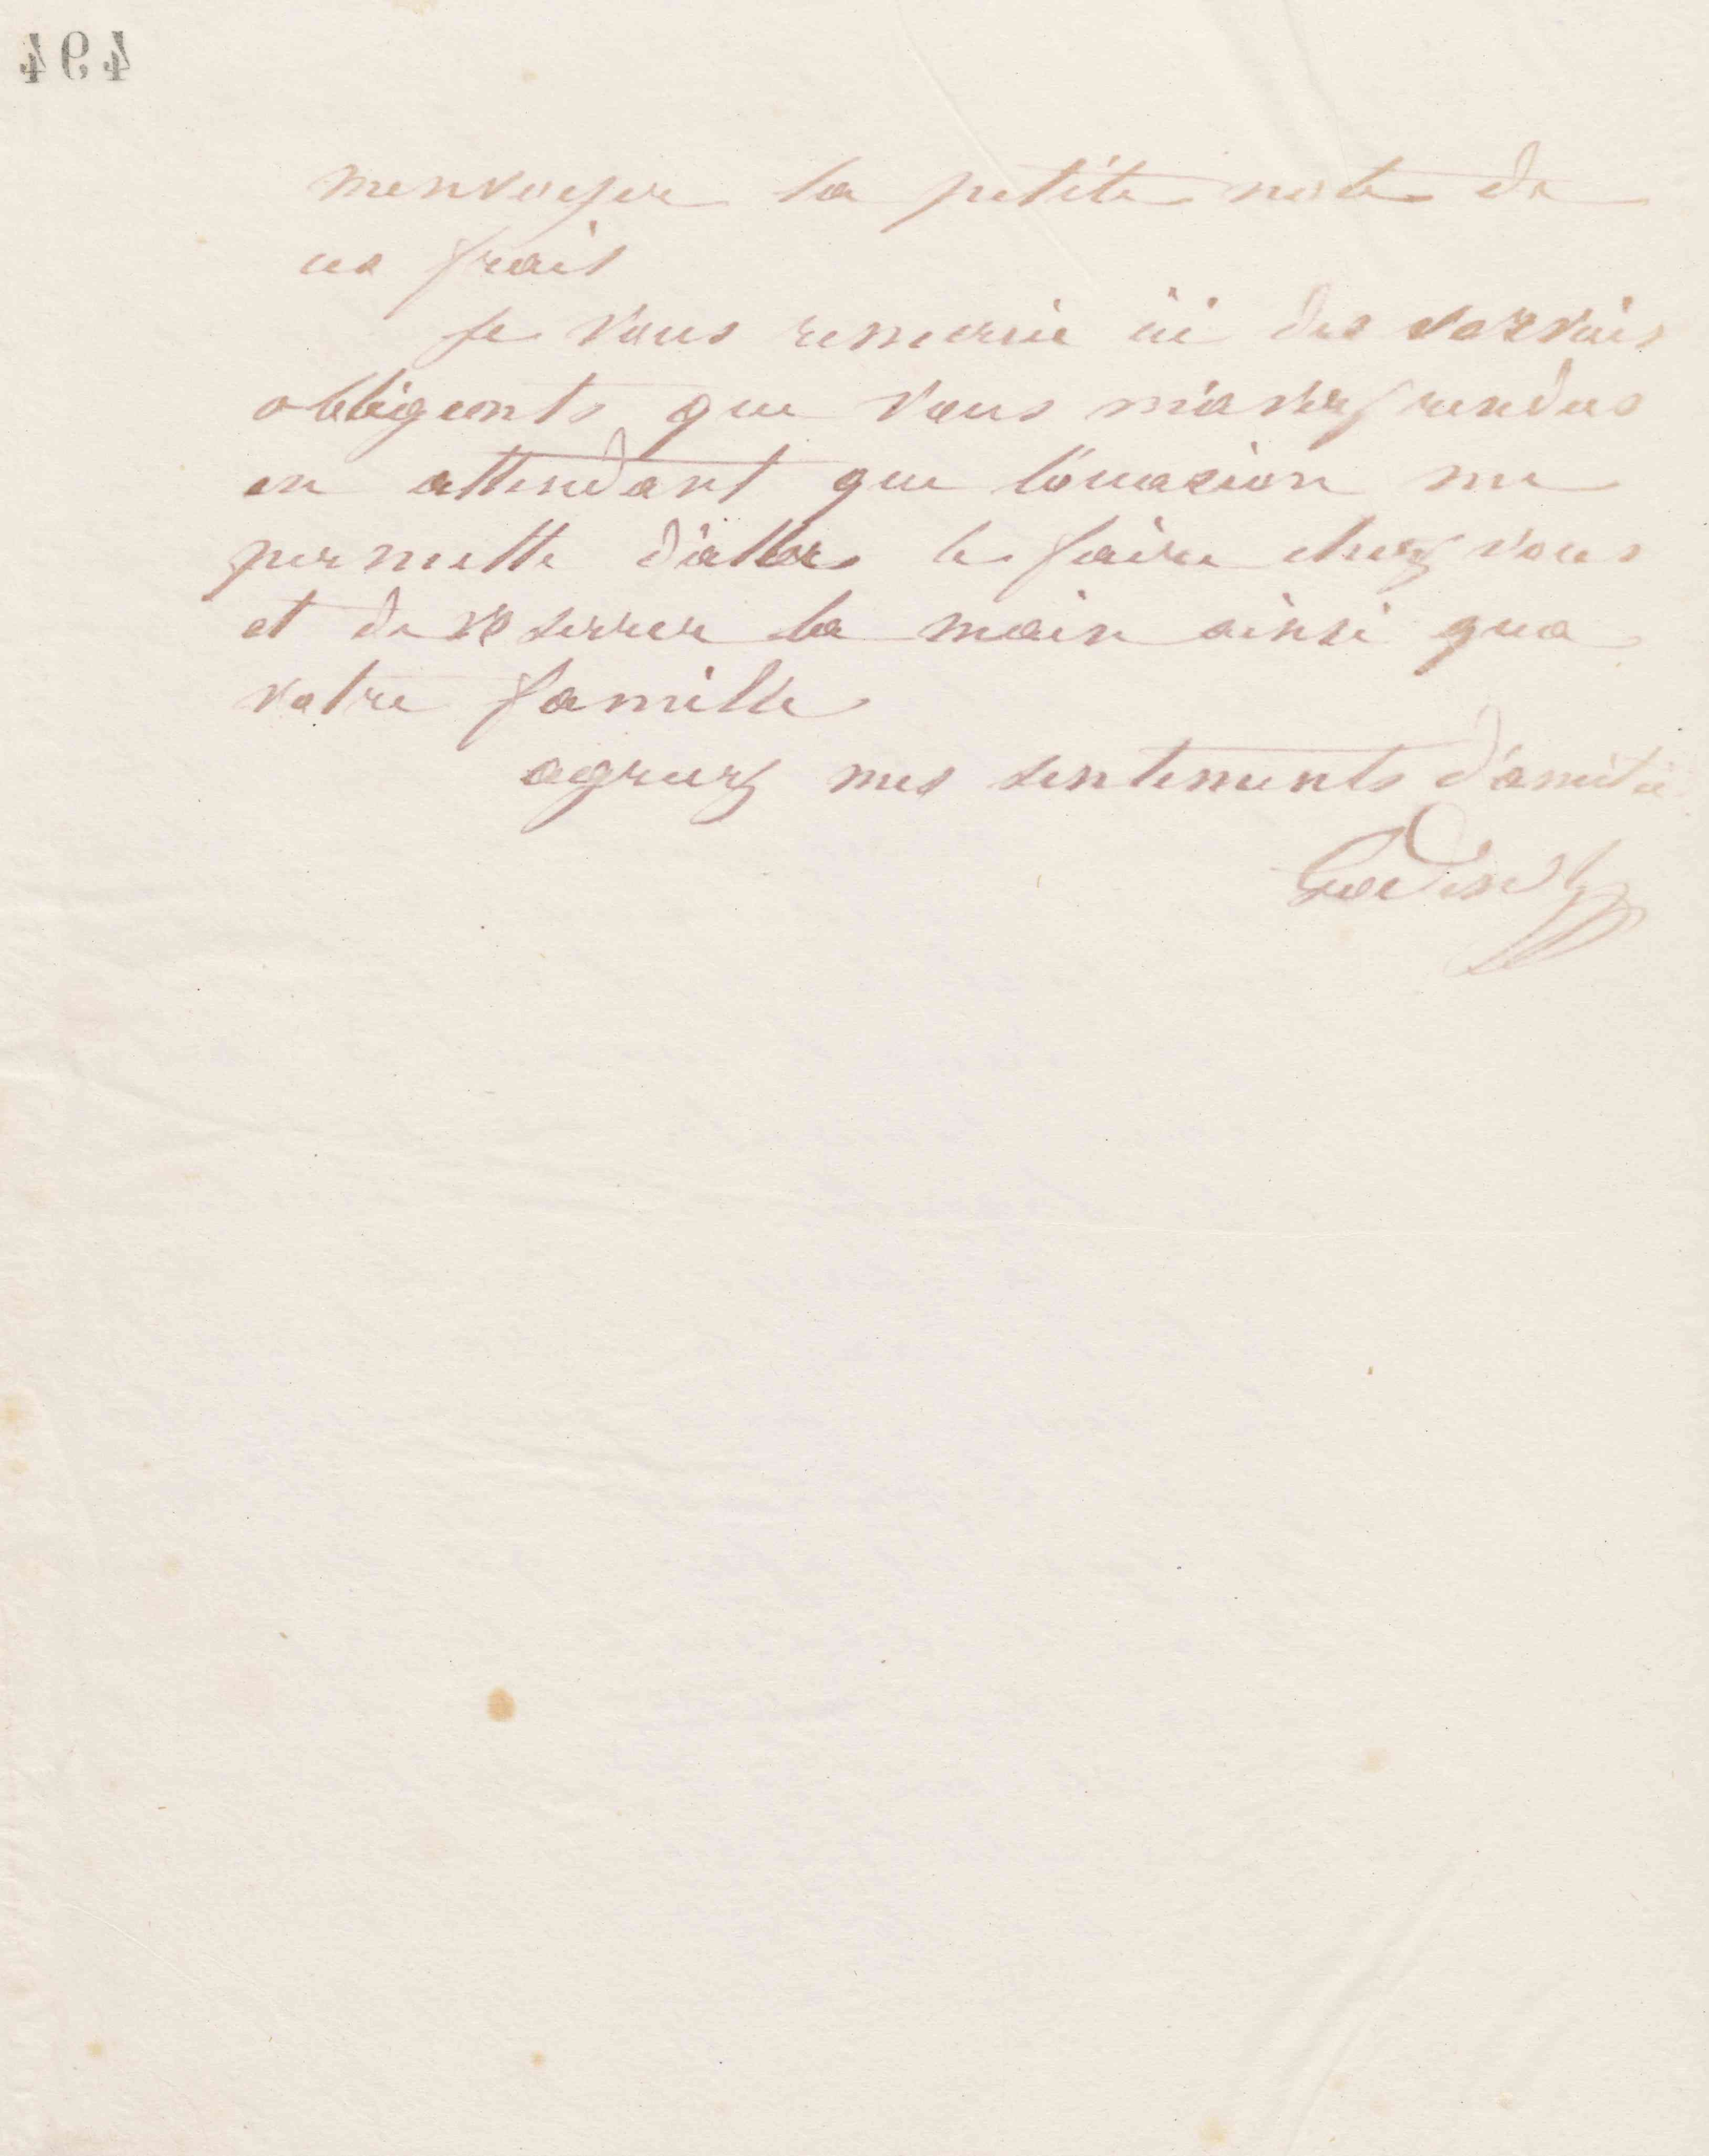 494
menvoyer la petite note de
ces frais
Je vous remercie ici des services
obligeants que vous m'avez rendus
en attendant que l'occasion me
permette d'aller le faire chez vous
et de vs serrer la main ainsi qua
votre famille
agreez mes sentiments d'amitié
Godin